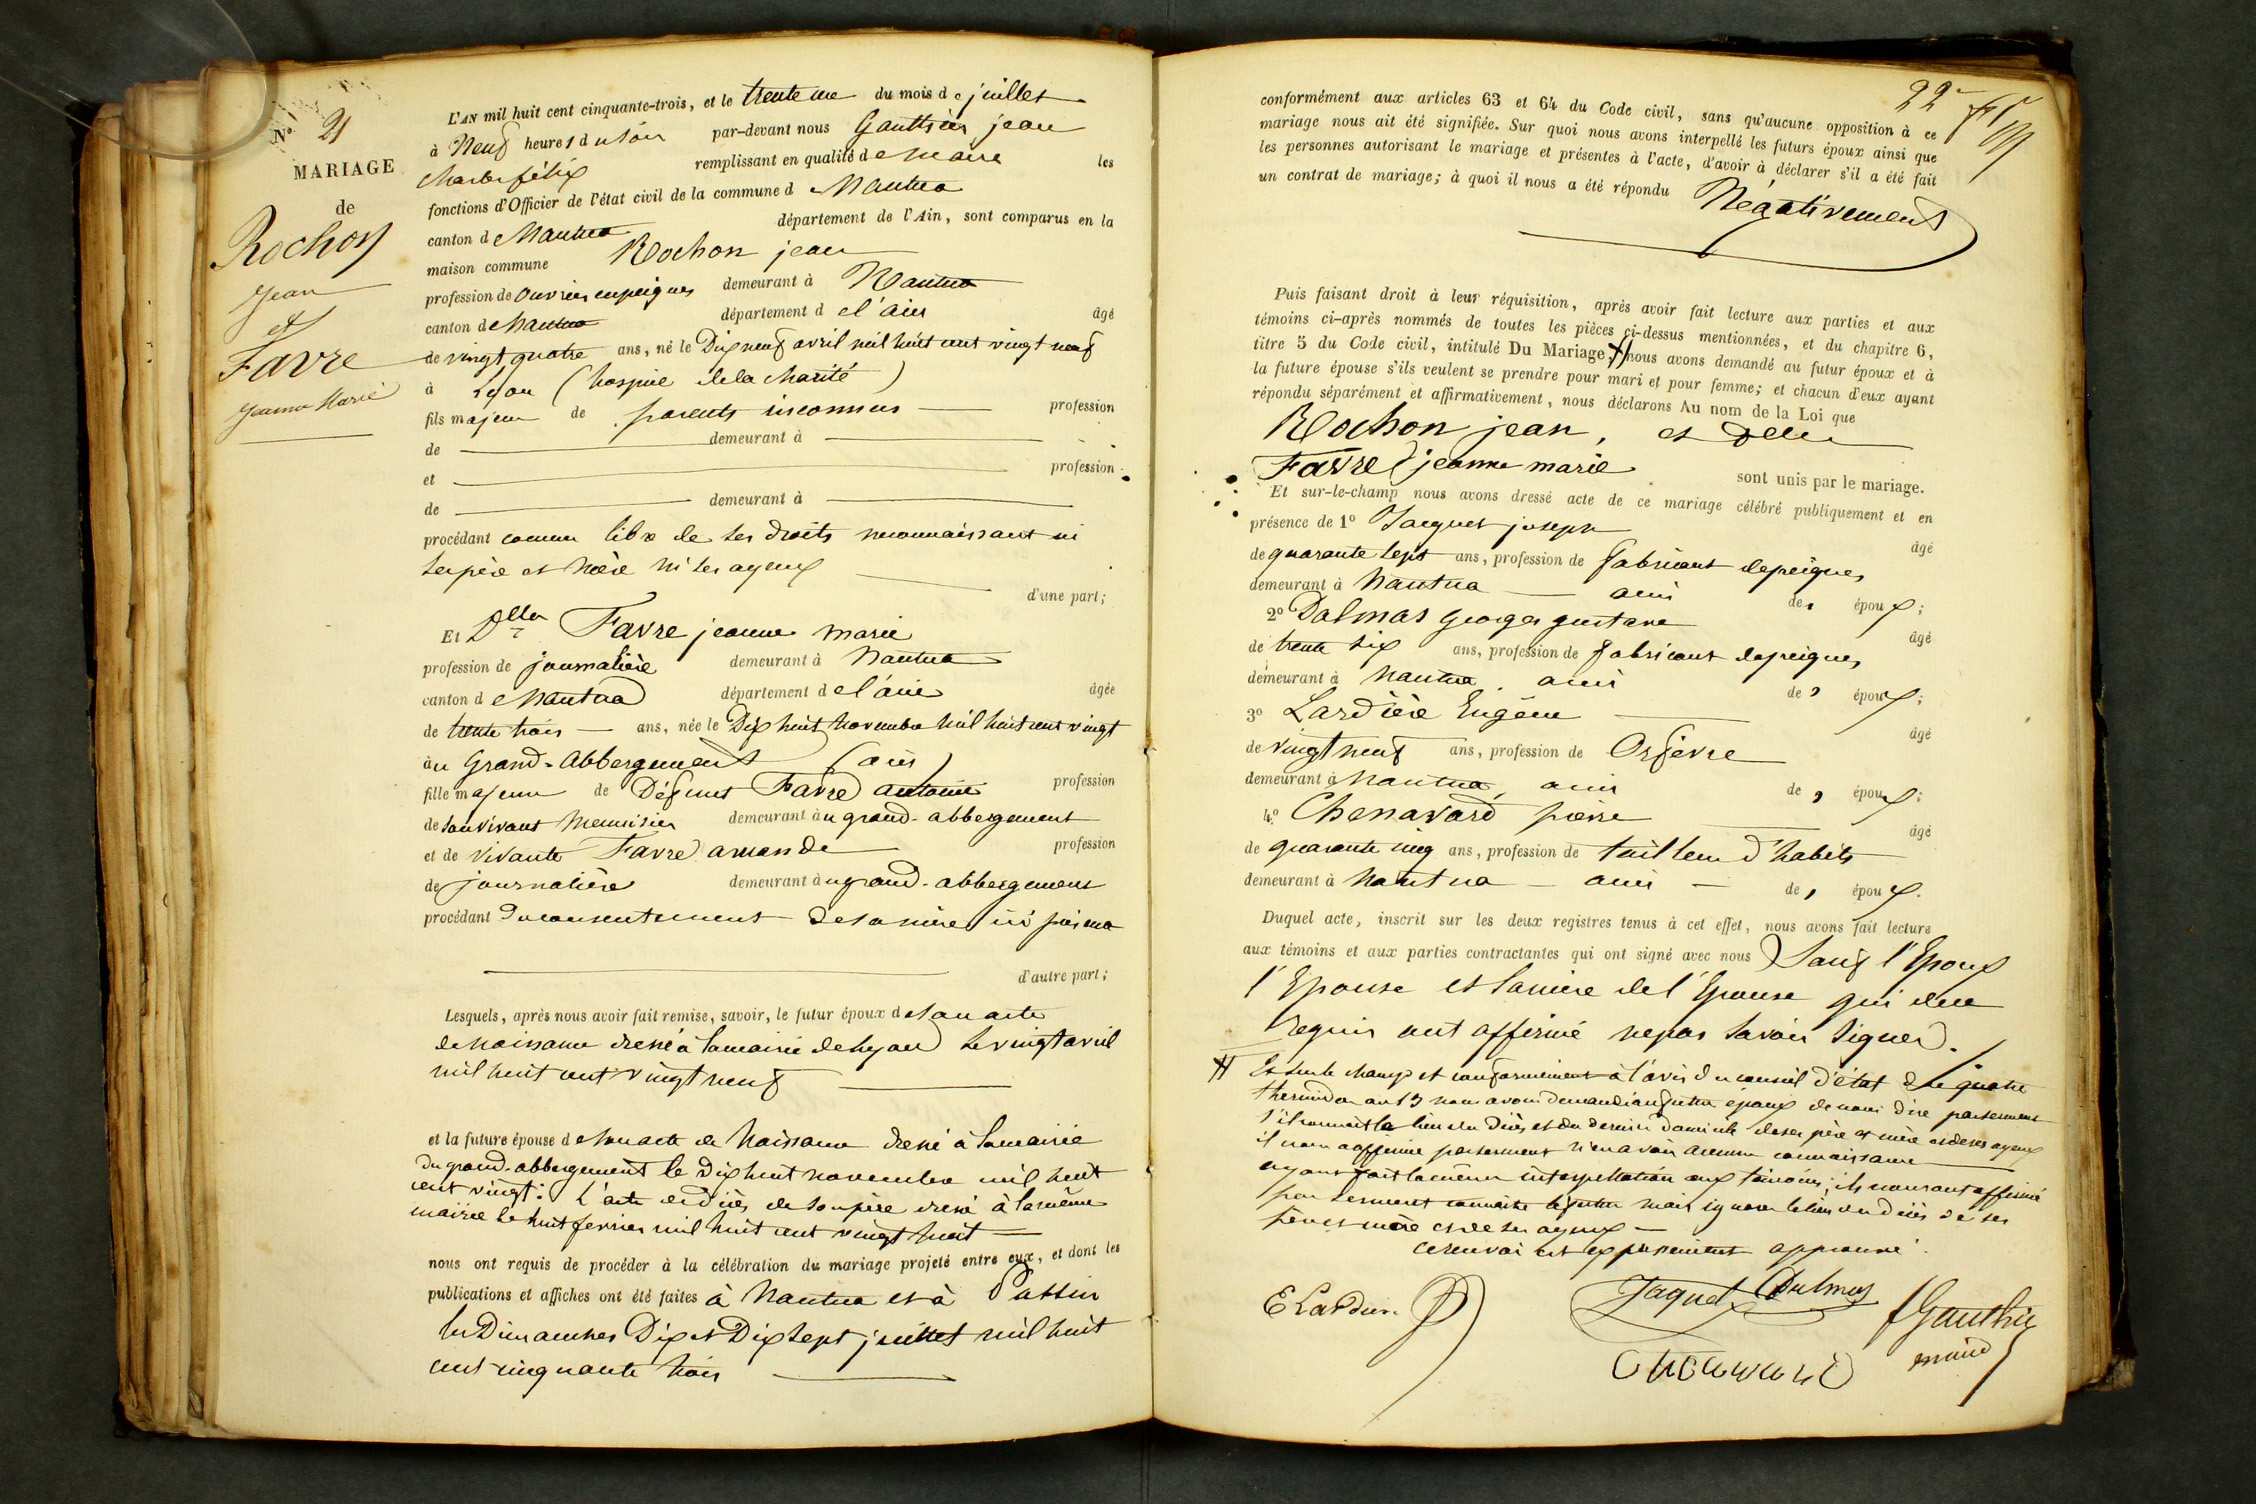 N° 21
MARIAGE
de
Rochon
Jean
et
Favre
Jeanne Marie
L'AN mil huit cent cinquante-trois, et le trente un du mois de juillet
à Neuf heures du soir par-devant nous Gauthier jean
Charles félix remplissant en qualité de Maire les
fonctions d'Officier de l'état civil de la commune de Nantua
canton de Nantua département de l'Ain, sont comparus en la
maison commune Rochon jean
profession de ouvrier en peignes demeurant à Nantua
canton de Nantua département de l'ain âgé
de vingt quatre ans, né le Dix neuf avril mil huit cent vingt neuf
à Lyon (hospice de la charité)
fils majeur de parents inconnus profession
de demeurant à
et profession
de demeurant à
procédant comme libre de ses droits ne connaissant ni
ses père et mère ni ses ayeux
d'une part;
Et Dlle Favre jeanne marie
profession de journalière demeurant à Nantua
canton de Nantua département de l'ain âgée
de trente trois ans, née le Dix huit novembre mil huit cent vingt
au Grand-Abbergement (ain)
fille majeure de Défunt Favre antoine profession
de son vivant Menuisier demeurant au grand-abbergement
et de vivante Favre amande profession
de journalière demeurant au grand-abbergement
procédant du consentement de sa mère ici présente
d'autre part;
Lesquels, après nous avoir fait remise, savoir, le futur époux de son acte
de naissance dressé à la mairie de Lyon le vingt avril
mil huit cent vingt neuf
et la future épouse de son acte de Naissance dressé à la mairie
du grand-abbergement le dix huit novembre mil huit
cent vingt: l'acte de décès de son père dressé à la même
mairie le huit fevrier mil huit cent vingt huit
nous ont requis de procéder à la célébration du mariage projeté entre eux, et dont les
publications et affiches ont été faites à Nantua et à
les Dimanches Dix et Dix sept juillet mil huit
cent cinquante trois
22e
conformément aux articles 63 et 64 du Code civil, sans qu'aucune opposition à ce
mariage nous ait été signifiée. Sur quoi nous avons interpellé les futurs époux ainsi que
les personnes autorisant le mariage et présentes à l'acte, d'avoir à déclarer s'il a été fait
un contrat de mariage; à quoi il nous a été répondu Négativement
Puis faisant droit à leur réquisition, après avoir fait lecture aux parties et aux
témoins ci-après nommés de toutes les pièces ci-dessus mentionnées, et du chapitre 6,
titre 5 du Code civil, intitulé Du Mariage, nous avons demandé au futur époux et à
la future épouse s'ils veulent se prendre pour mari et pour femme; et chacun d'eux ayant
répondu séparément et affirmativement, nous déclarons Au nom de la Loi que
Rochon jean, et Delle
Favre jeanne marie sont unis par le mariage.
Et sur-le-champ nous avons dressé acte de ce mariage célébré publiquement et en
présence de 1° Jacquet joseph âgé
de quarante sept ans, profession de fabricant de peignes
demeurant à Nantua ami des époux;
2° Dalmas georges gustave âgé
de trente six ans, profession de fabricant de peignes
demeurant à Nantua ami des époux;
3° Lardière Eugène âgé
de vingt neuf ans, profession de Orfèvre
demeurant à Nantua, ami des époux;
4° Chenavard pierre âgé
de quarante cinq ans, profession de tailleur d'habits
demeurant à Nantua ami des époux.
Duquel acte, inscrit sur les deux registres tenus à cet effet, nous avons fait lecture
aux témoins et aux parties contractantes qui ont signé avec nous Sauf l'Epoux
l'Epouse et la mère de l'Epouse qui de ce
requis ont affirmé ne pas savoir signer.
Et sur le champ et conformément à l'avis du conseil d'état du quatre
thermidor an 13 nous avons demandé au futur époux de nous dire par serment
s'il connait le lieu du décès et du dernier domicile de ses père et mère et de ses ayeux
il nous a affirmé par serment n'en avoir aucune connaissance
ayant fait la même interpellation aux témoins; ils nous ont affirmé
par serment connaitre le futur mais ignorer le lieu du décès de ses
père et mère et de ses ayeux
ce renvoi est expressément approuvé
E Lardière Jaquet Dalmas f Gauthier
maire
Chenavard